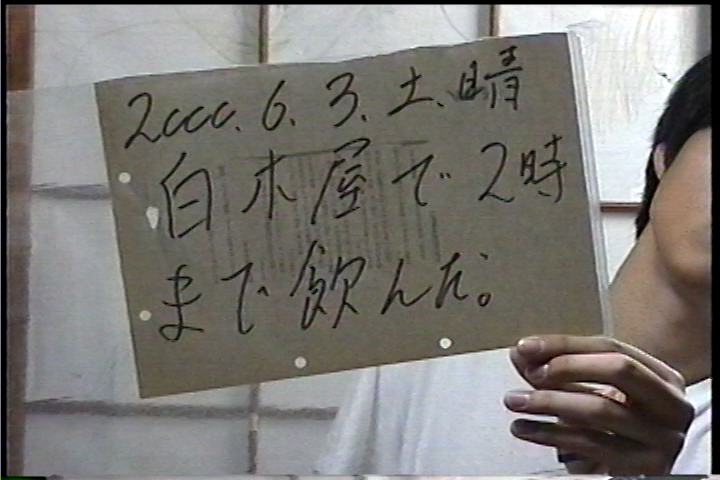 2000. 6. 3. 土. 晴
白木屋で2時
まで飲んだ。